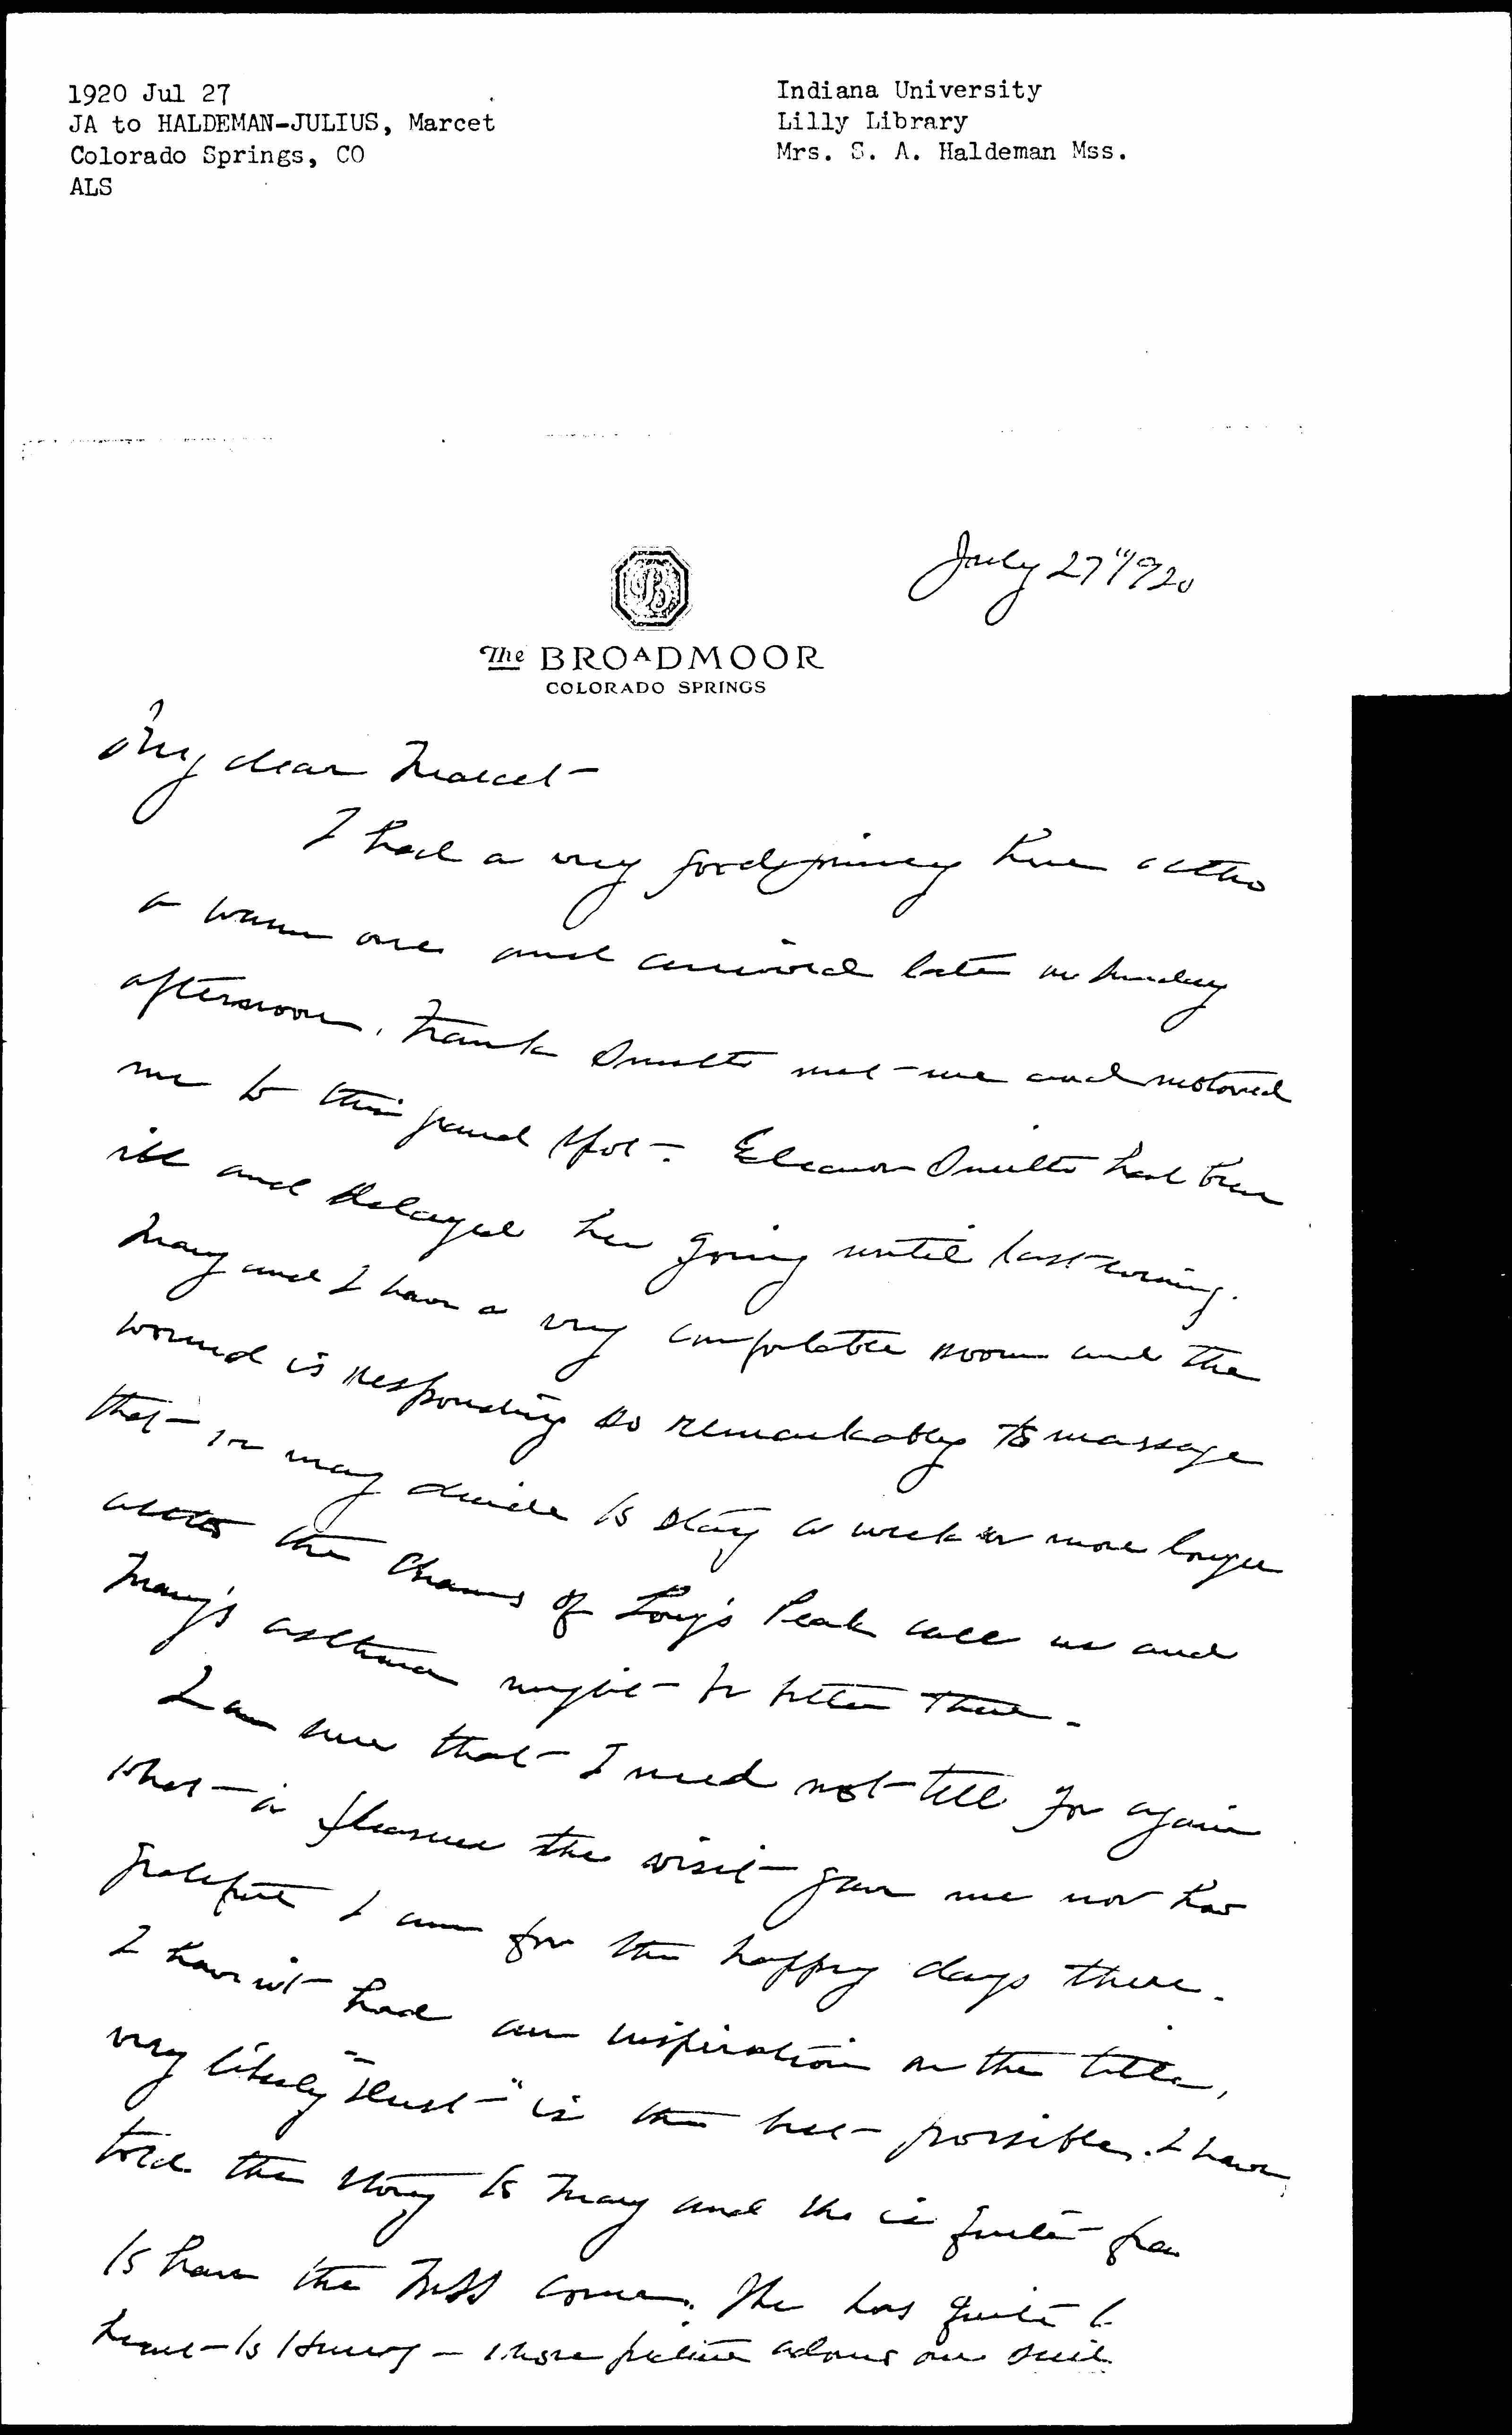 1920 Jul 27
JA to HALDEMAN-JULIUS, Marcet
Colorado Springs, CO
ALS
Indiana University
Lilly Library
Mrs. S. A. Haldeman Mss.
July 27" 1920
B
The BROADMOOR
COLORADO SPRINGS
My dear Marcet -
I had a very good journey here altho
a warm one and arrived late on Sunday
afternoon. Frank Smith met me and motored
me to this grand spot - Eleanor Smith had been
ill and delayed her going until last evening.
Mary and I have a very comfortable room and the
wound is responding so remarkably to massage
that we may decide to stay a week or more longer
altho the charms of Long's Peak call us and
Mary's asthma might be better there -
I am sure that I need not tell you again
what a pleasure the visit gave me nor how
grateful I am for the happy days there.
I have not had an inspiration on the title,
very likely "Dust" is the best possible. I have
told the story to Mary and she is quite
to have the MSS come. She has quite
to Henry - whose picture adorns our